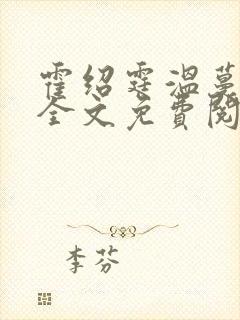 霍绍霆温蔓
全文免费阅
李芬